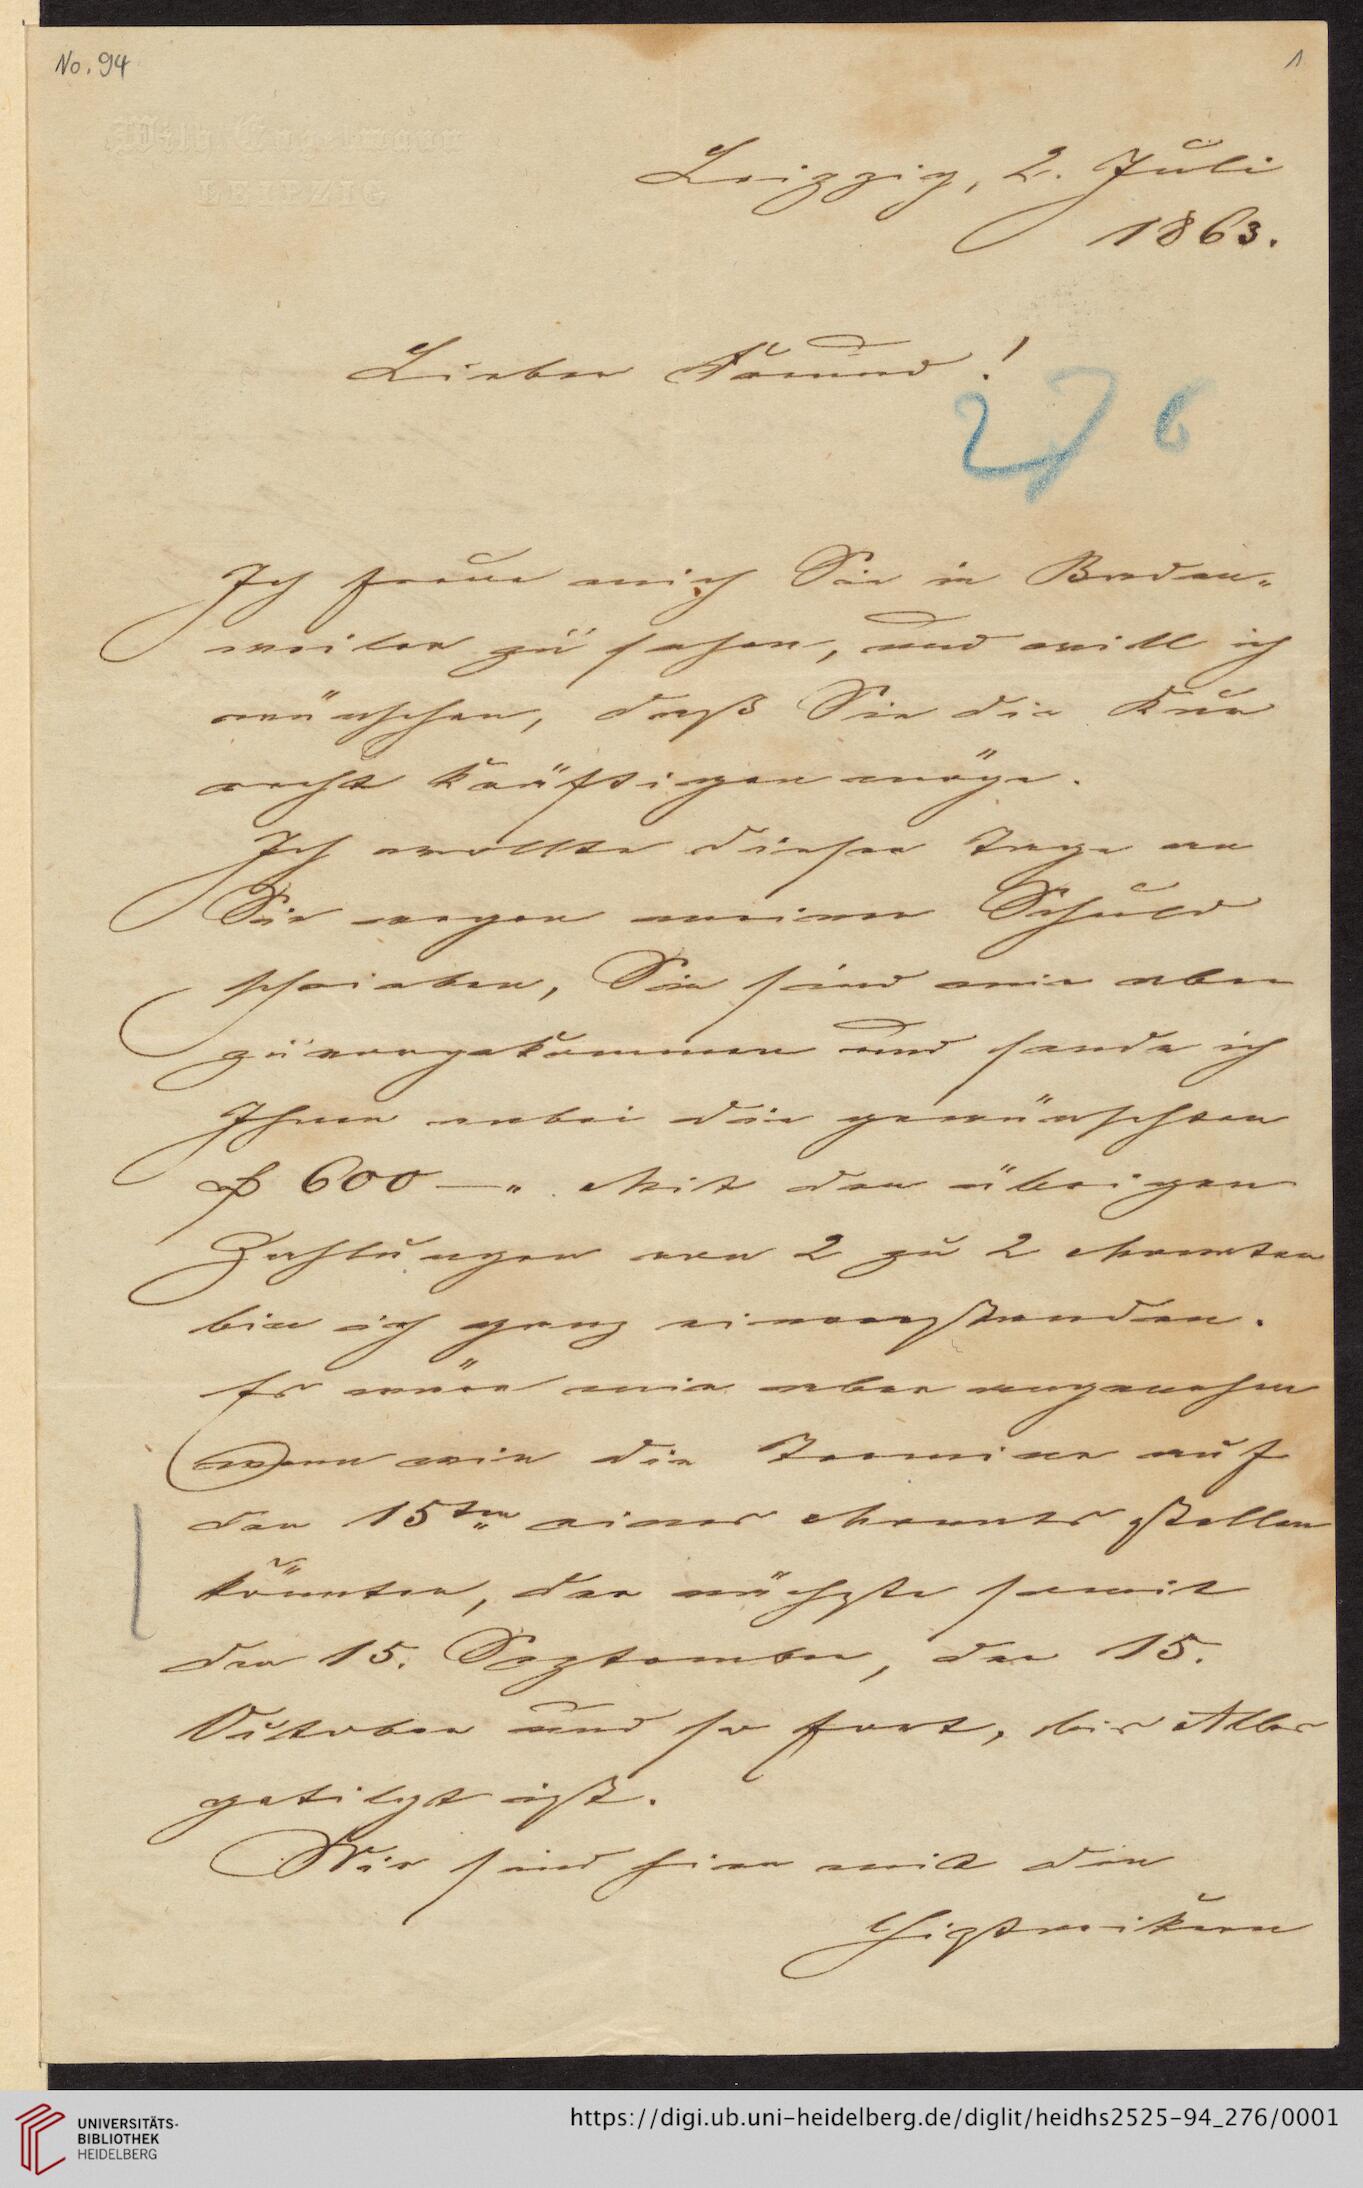 No. 94
1
Wilh. Engelmann
LEIPZIG
Leipzig, 2. Juli
1863.
Lieber Freund!
276
Ich freue mich Sie in Baden-
weiler zu sehen, und will ich
wünschen, daß Sie die Kur
recht kräftigen möge.
Ich wollte dieser Tage an
Sie wegen meiner Schuld
schreiben, Sie sind mir aber
zuvorgekommen und sende ich
Ihnen anbei die gewünschten
600 —„ Mit den übrigen
Zahlungen von 2 zu 2 Monaten
bin ich ganz einverstanden.
Es wäre mir aber angenehm
wenn wir die Termine auf
den 15ten eines Monats stellen
könnten, der nächste somit
den 15. September, den 15.
October und so fort, bis Alles
getilgt ist.
Wir sind hier mit den
UNIVERSITÄTS-
BIBLIOTHEK
HEIDELBERG
https://digi.ub.uni-heidelberg.de/diglit/heidhs2525-94_276/0001